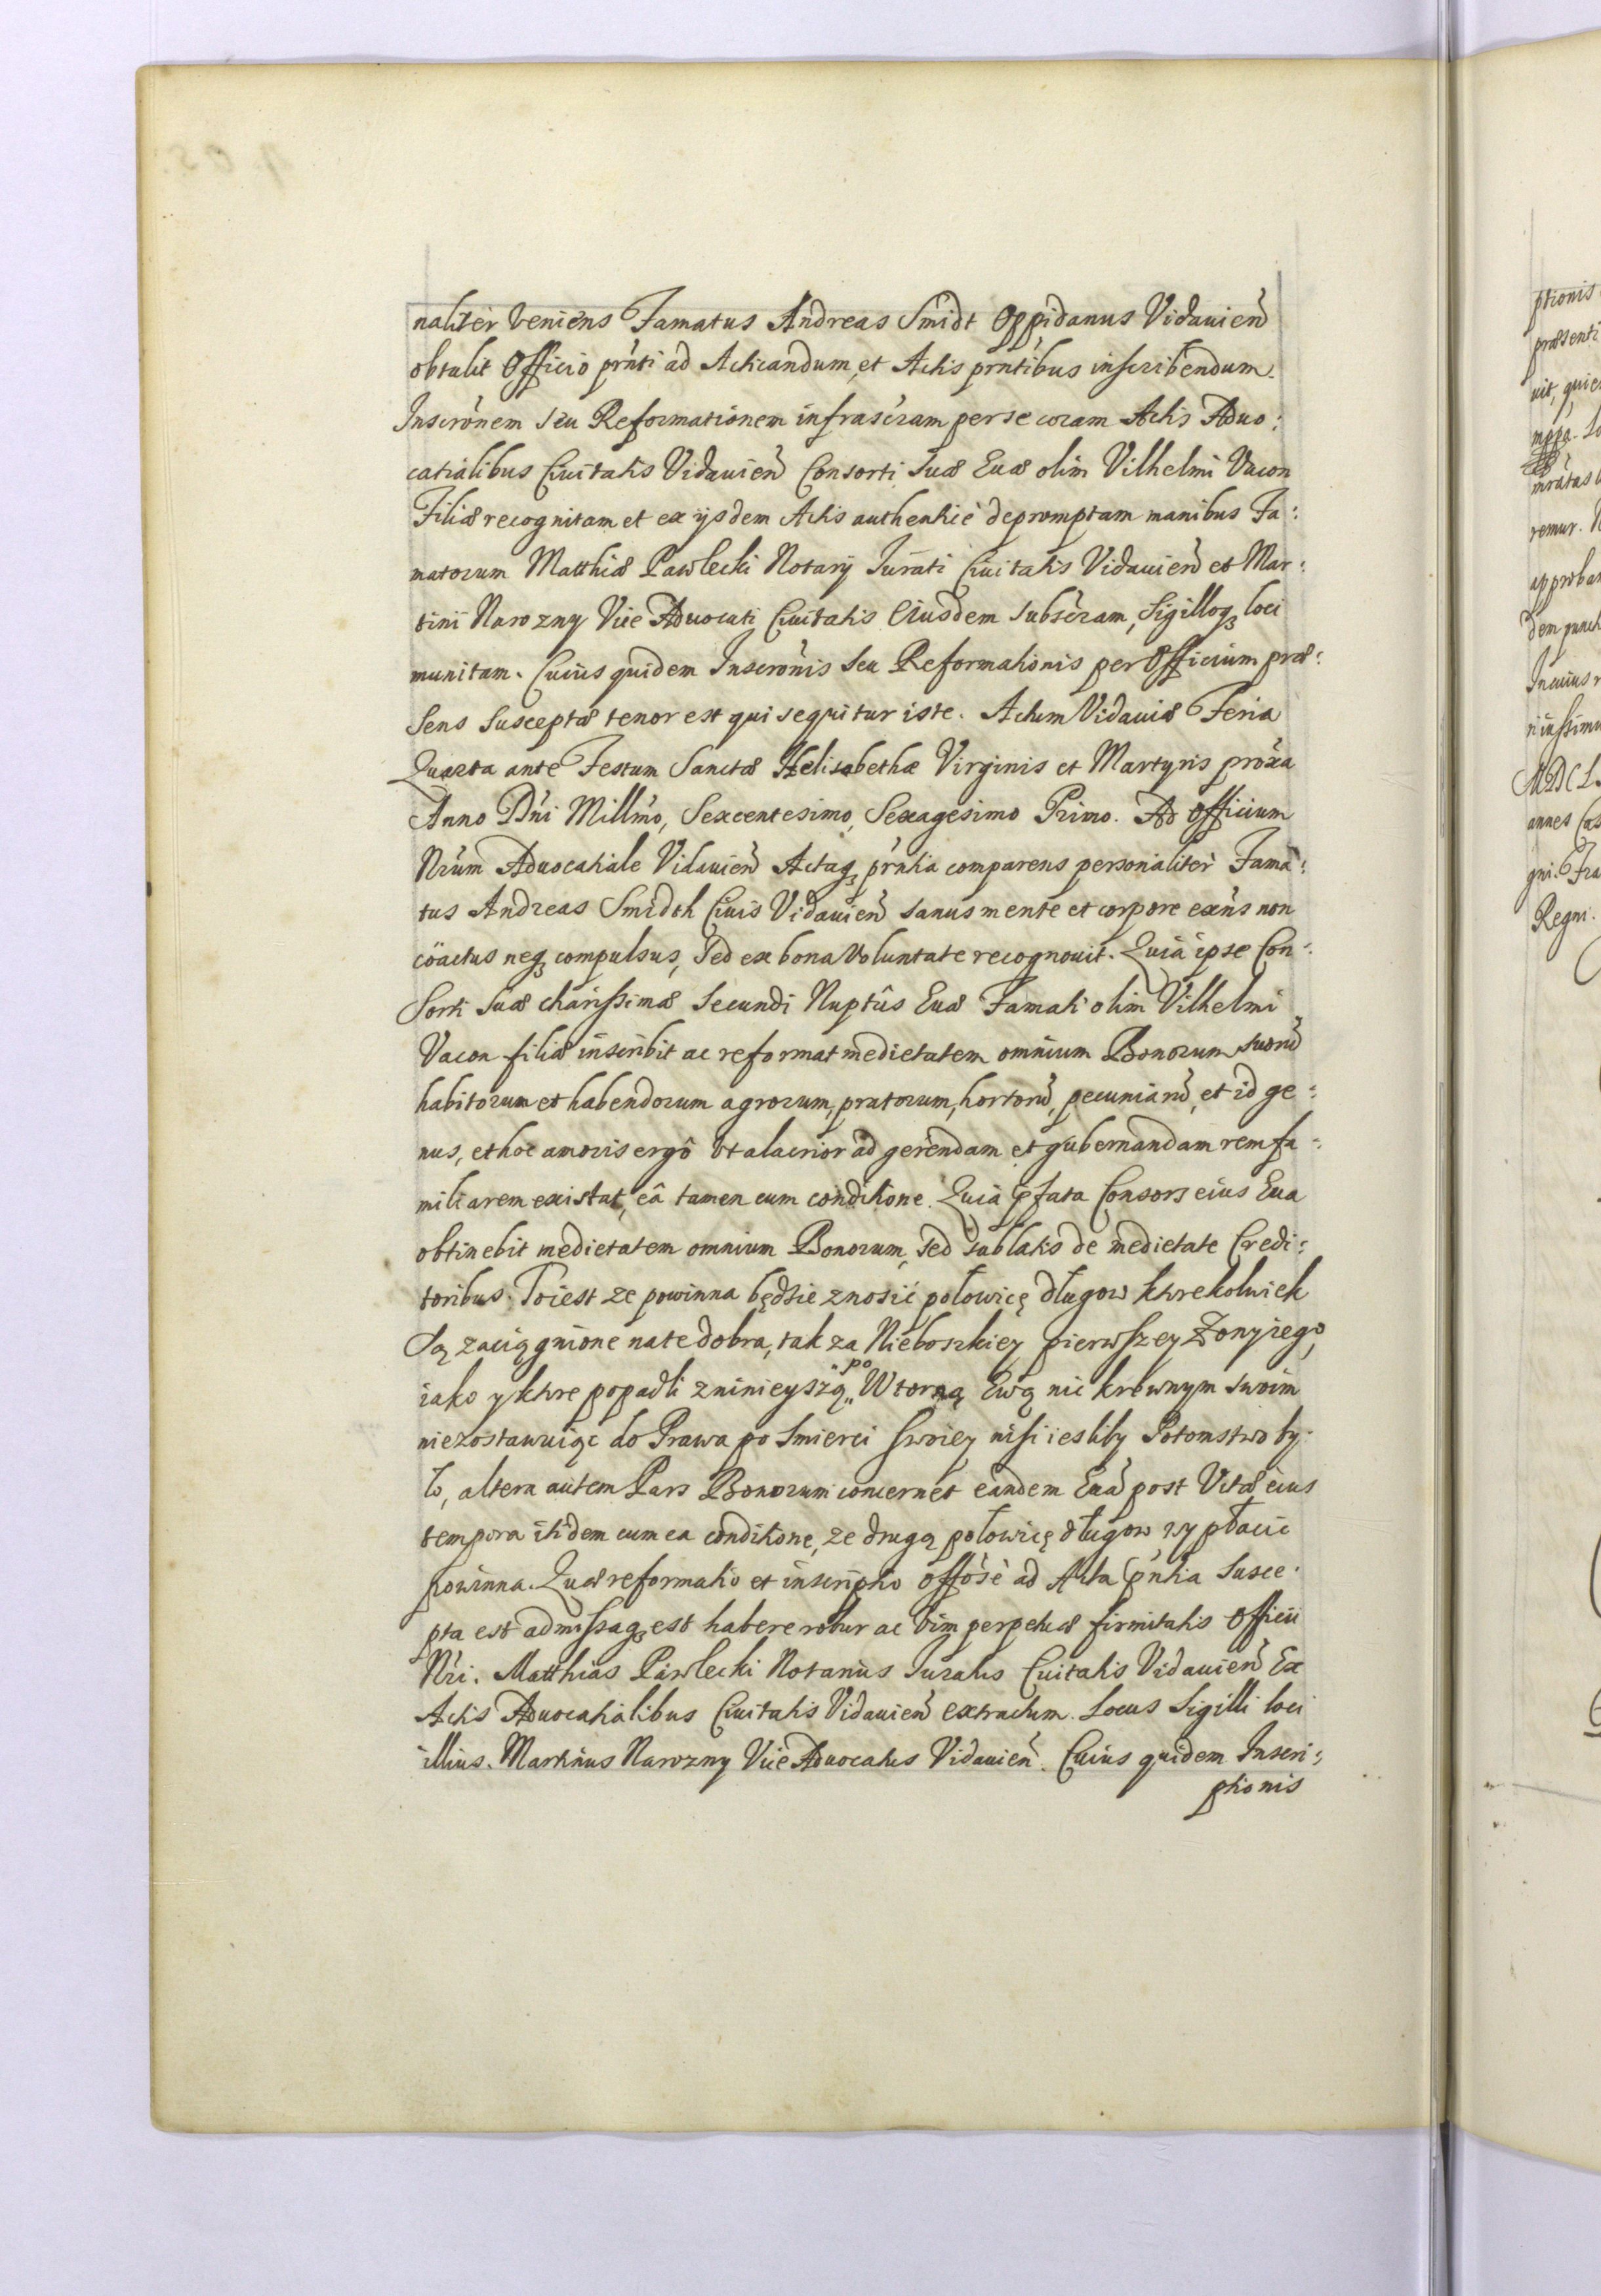 naliter veniens Famatus Andreas Smidt Oppidanus Vidavien̄
obtulit Officio prn̄ti ad Acticandum, et Actis prn̄tibus inscribendum
Inscrōnem seu Reformationem infrascr̄am per se coram Actis Advo:
catialibus Civitatis Vidavien̄ Consorti suæ Evæ olim Vilhelmi Vacon
Filiæ recognitam et ex ijsdem Actis authenticè depromptam manibus Fa:
matorum Matthiæ Pawlecki Notarij Jurati Civitatis Vidavien̄ et Mar:
tini Narozny Vice Advocati Civitatis Eiusdem subscr̄am, Sigilloq̨ loci
munitam. Cuius quidem Inscrōnis seu Reformationis per Officium præ:
sens susceptæ tenor est qui sequitur iste. Actum Vidaviæ Feria
Quarta ante Festum Sanctæ Helisabethæ Virginis et Martyris prōxa
Anno Dn̄i Millm̄o, Sexcentesimo, Sexagesimo Primo. Ad Officium
Nr̄um Advocatiale Vidavien̄ Actaq̨ pr̄ntia comparens personaliter Fama:
tus Andreas Smidth Civis Vidavien̄ sanus mente et corpore exn̄s non
cöactus neq̨ compulsus, sed ex bona voluntate recognouit. Quia ipse Con:
sorti suæ charissimæ secundi Nuptûs Evæ Famati olim Vilhelmi
Vacon filiæ inscribit ac reformat medietatem omnium Bonorum suorū
habitorum et habendorum agrorum, pratorum, hortorū, pecuniarū, et id ge:
nus, et hoc amoris ergô ut alacrior ad gerendam et gubernandam rem fa:
miliarem existat, eâ tamen cum conditione. Quia p̄fata Consors eius Eva
obtinebit medietatem omnium Bonorum, sed sublatis de medietate Credi:
toribus. Toiest ze powinna będzie znosić połowicę długow ktorekolwiek
są zaciągnione na te dobra, tak za Nieboszkiey pierwszey Zony iego,
iako y ktore popadli z ninieyszą „po Wtorną Ewą nic krewnym swoim
niezostawuiąc do Prawa po smierci swoiey nisi iesliby Potomstwo by:
ło, altera autem Pars Bonorum concernet eandem Evā post Vitæ eius
tempora itidem cum ea conditione, ze drugą połowicę długow wypłacic
powinna. Quæ reformatio et inscriptio offōsè ad Acta p̄ntia susce:
pta est admissaq̨ est habere robur ac vim perpetuæ firmitatis Officii
Nr̄i. Matthias Pawlecki Notarius Juratus Civitatis Vidavien̄ Ex
Actis Advocatialibus Civitatis Vidavien̄ extractum. Locus Sigilli loci
illius. Martinus Narozny Vice Advocatus Vidavien̄. Cuius quidem Inscri:
ptionis